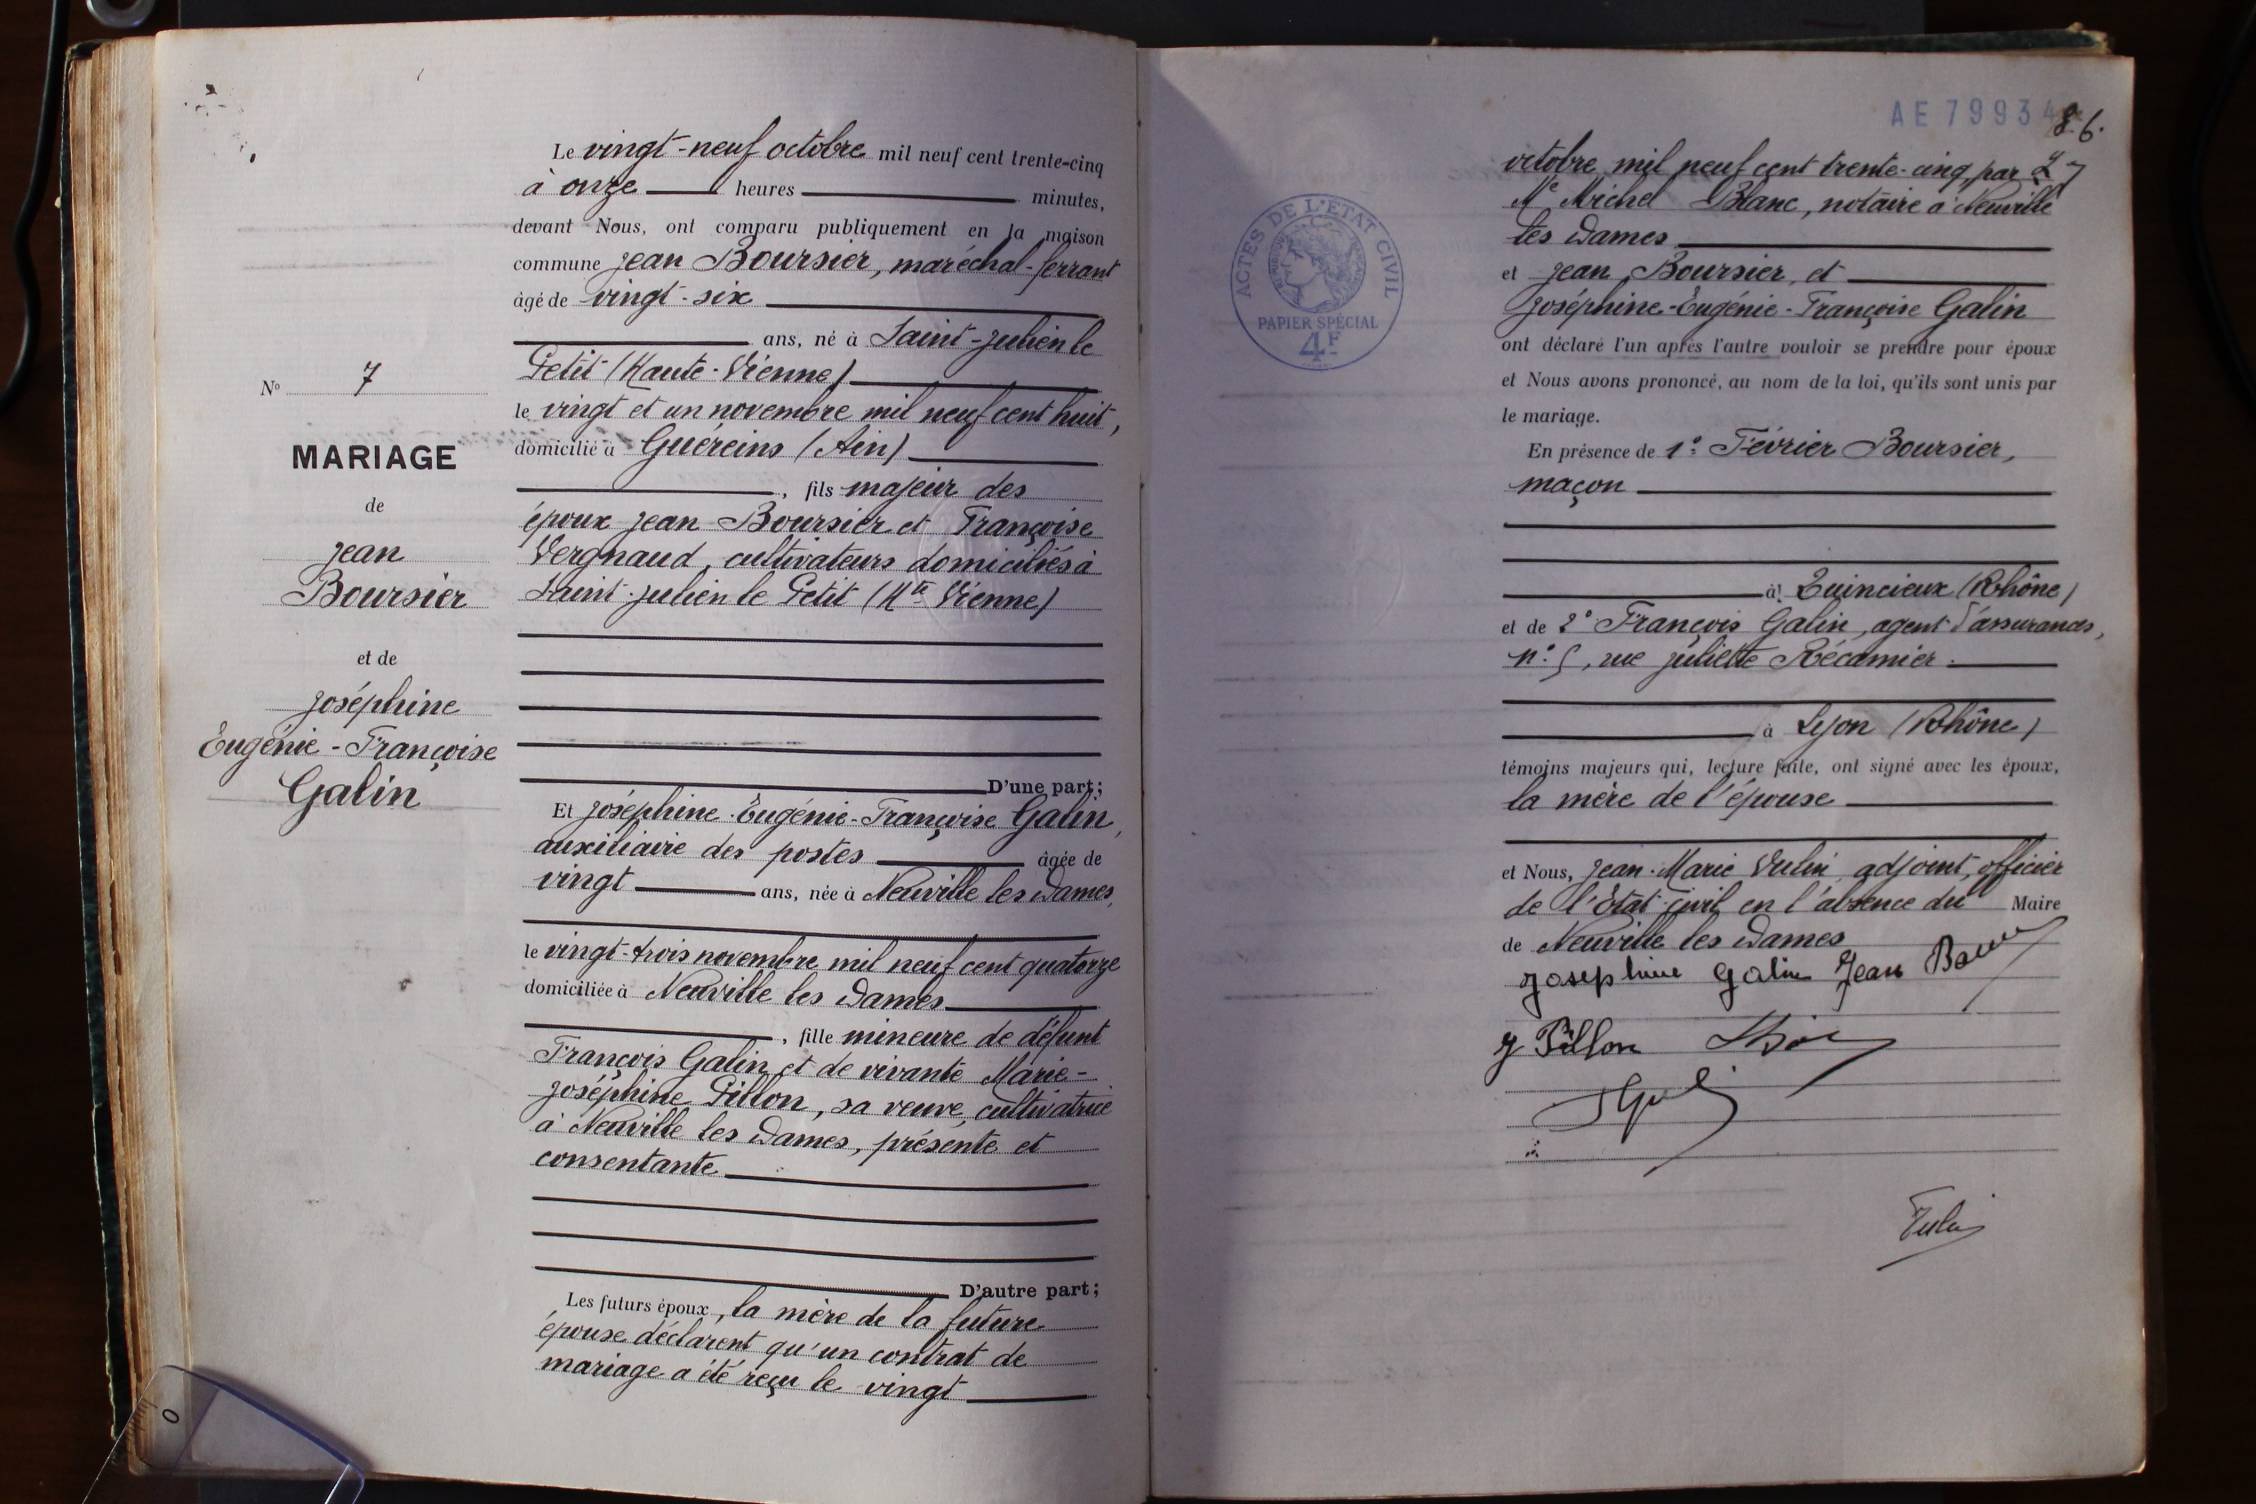 Le vingt-neuf octobre mil neuf cent trente-cinq
à onze heures minutes,
devant Nous, ont comparu publiquement en la maison
commune Jean Boursier, maréchal-ferrant
âgé de vingt-six
ans, né à Saint-Julien le
Petit (Haute-Vienne)
le vingt et un novembre mil neuf cent huit,
domicilié à Guéreins (Ain)
, fils majeur des
époux Jean Boursier et Françoise
Vergnaud, cultivateurs domiciliés à
Saint-Julien le Petit (Hte Vienne)
D'une part;
Et Joséphine-Eugénie-Françoise Galin,
auxiliaire des postes âgée de
vingt ans, née à Neuville les Dames,
le vingt-trois novembre mil neuf cent quatorze
domiciliée à Neuville les Dames
, fille mineure de défunt
François Galin et de vivante Marie-
Joséphine Pillon, sa veuve, cultivatrice
à Neuville les Dames, présente et
consentante
D'autre part;
Les futurs époux, la mère de la future
épouse déclarent qu'un contrat de
mariage a été reçu le vingt
No 7
MARIAGE
de
Jean
Boursier
et de
Joséphine
Eugénie-Françoise
Galin
AE 79934
86.
octobre mil neuf cent trente-cinq, par
Me Michel Blanc, notaire à Neuville
les Dames
et Jean Boursier, et
Joséphine-Eugénie-Françoise Galin
ont déclaré l'un après l'autre vouloir se prendre pour époux
et Nous avons prononcé, au nom de la loi, qu'ils sont unis par
le mariage.
En présence de 1º: Février Boursier,
maçon
à Quincieux (Rhône)
et de 2º François Galin, agent d'assurances,
nº: 5, rue Juliette Récamier.
à Lyon (Rhône)
témoins majeurs qui, lecture faite, ont signé avec les époux,
la mère de l'épouse
et Nous, Jean-Marie Vulin adjoint, officier
de l'État-civil en l'absence du Maire
de Neuville les Dames
Josephine Galin Jean
J Pillon
Vulin
ACTES DE L'ETAT CIVIL
PAPIER SPÉCIAL
4F
0